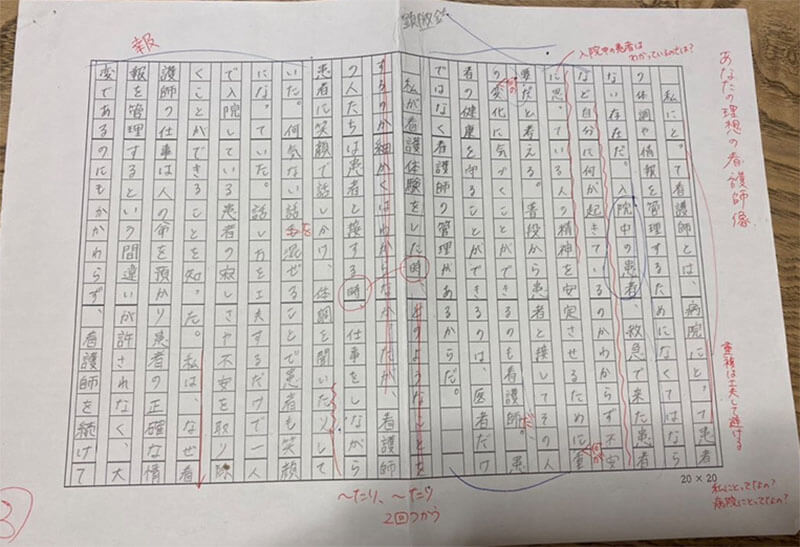 あなたの理想の看護師像
私にとって看護師とは、病院にとって患者
の体調や情報を管理するためになくてはなら
ない存在だ。入院中の患者、救急で来た患者
など自分に何が起きているのかわからず不安
に思っている人の精神を安定させるために重
要だと考える。普段から患者と接してその人
の変化に気づくことができるのも看護師。患
者の健康を守ることができるのは、医者だけ
ではなく看護師の管理があるからだ。
私が看護体験をした時、どのようなことを
するのか細かくはわからなかったが、看護師
の人たちは患者と接する時、仕事をしながら
患者に笑顔で話しかけ、体調を聞いたりして
いた。何気ない話も混ぜることで患者も笑顔
になっていた。話し方を工夫するだけで一人
で入院している患者の寂しさや不安を取り除
くことができることを知った。私は、なぜ看
護師の仕事は人の命を預かり患者の正確な情
報を管理するという間違いが許されなく、大
変であるのにもかかわらず、看護師を続けて
入院中の患者は
わかっているのでは？
重複は工夫して避ける
私にとってなの？
病院にとってなの？
20×20
〜たり、〜たり
2回つかう
を
だ
報
3